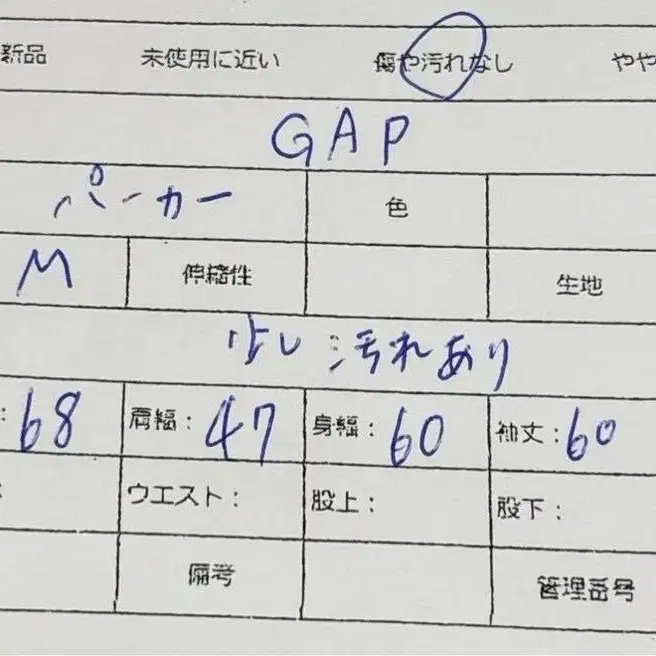 新品 未使用に近い 傷や汚れなし やや
GAP
パーカー 色
M 伸縮性 生地
少し汚れあり
: 68 肩幅: 47 身幅: 60 袖丈: 60
: ウエスト: 股上: 股下:
備考 管理番号